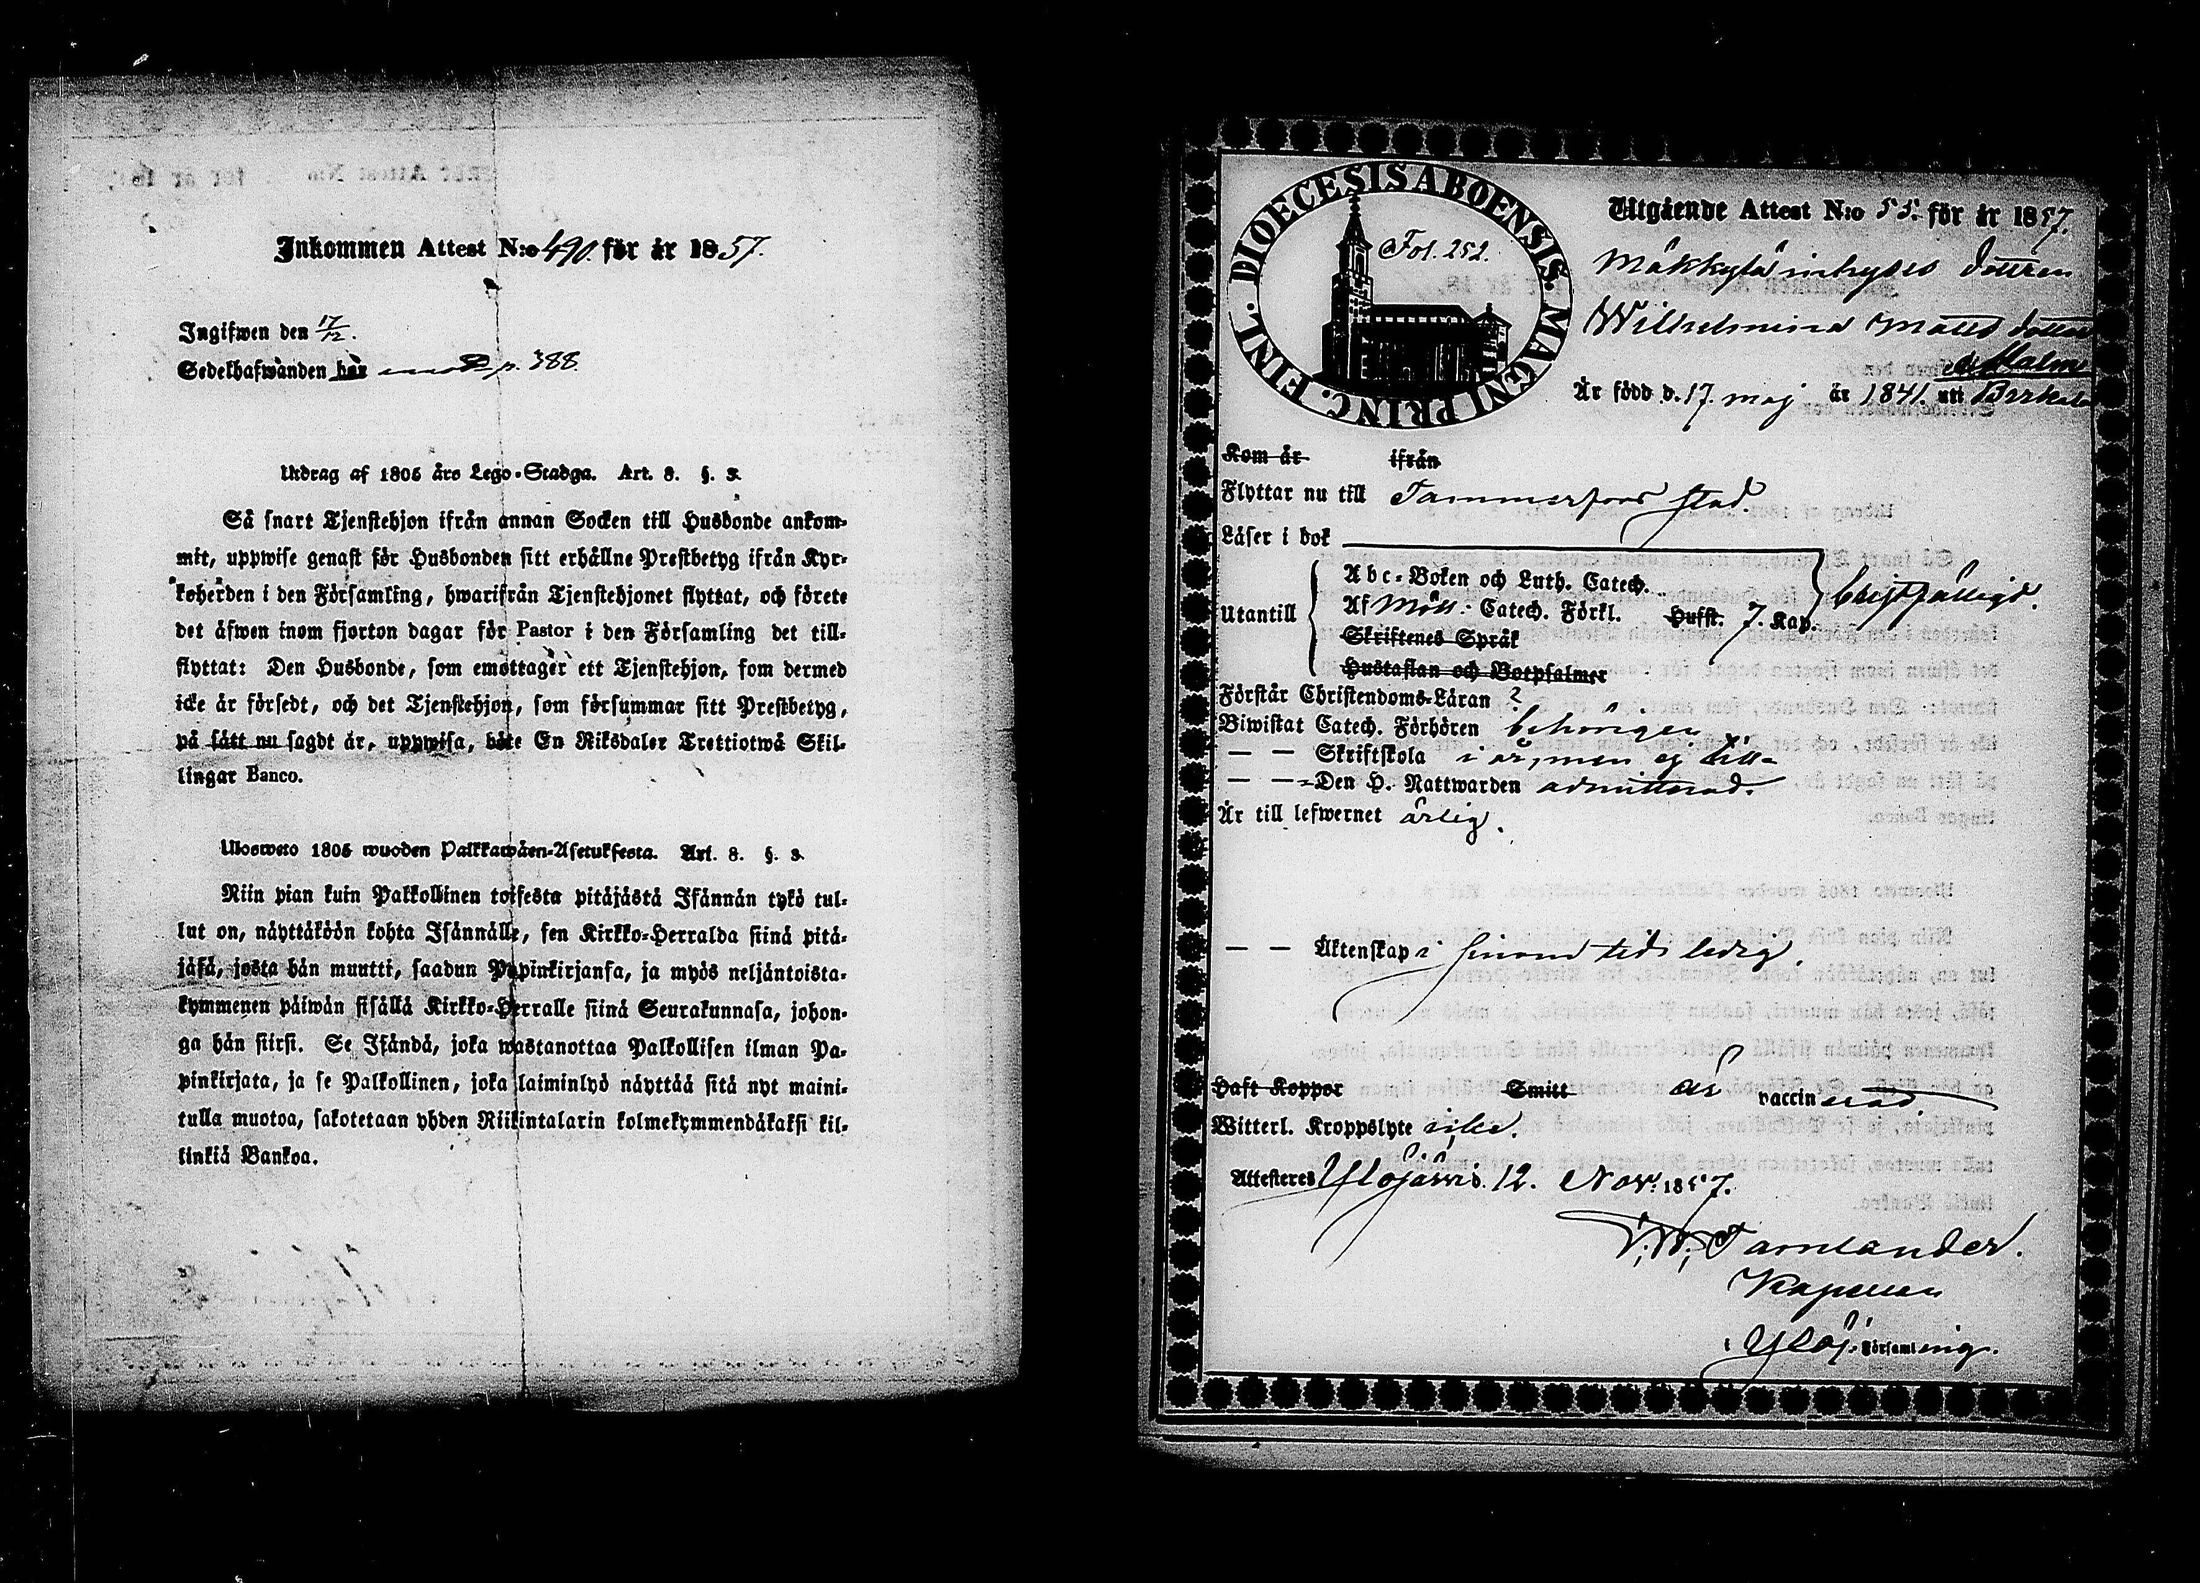 Inkommen Attest N:o 490. för år 1857.
Ingifwen den 17/12.
Sedelhafwanden har p. 388.
Utdrag af 1805 års Lego-Stadga. Art. 8. §. 3.
Så snart Tjenstehjon ifrån annan Socken till Husbonde ankom-
mit, uppwise genast för Husbonden sitt erhållne Prestbetyg ifrån Kyr-
koherden i den Församling, hwarifrån Tjenstehjonet flyttat, och förete
det äfwen inom fjorton dagar för Pastor i den Församling det till-
flyttat: Den Husbonde, som emottager ett Tjenstehjon, som dermed
icke är försedt, och det Tjenstehjon, som försummar sitt Prestbetyg,
på sätt nu sagdt är, uppwisa, böte En Riksdaler Trettiotwå Skil-
lingar Banco.
Ulosweto 1805 wuoden Palkkawäen-Asetuksesta. Art. 8. §. 3.
Niin pian kuin Palkollinen toisesta pitäjästä Isännän tykö tul-
lut on, näyttäköön kohta Isännälle, sen Kirkko-Herralda siinä pitä-
jäsä, josta hän muutti, saadun Papinkirjansa, ja myös neljäntoista-
kymmenen päiwän sisällä Kirkko-Herralle siinä Seurakunnasa, johon-
ga hän siirsi. Se Isändä, joka wastanottaa Palkollisen ilman Pa-
pinkirjata, ja se Palkollinen, joka laiminlyö näyttää sitä nyt maini-
tulla muotoa, sakotetaan yhden Riikintalarin kolmekymmendäkaksi kil-
linkiä Bankoa.
DIOECESIS ABOENSIS. MAGNI PRINC. FINL.
Fol. 252.
Utgående Attest N:o 55. för år 1857.
Mäkkylä inhyses dottren
Wilhelmina Matts dotter
Malm
Är född d. 17. maj år 1841. uti Birkala
Kom år ifrån
Flyttar nu till Tammerfors stad.
Läser i bok
Utantill
Abc-Boken och Luth. Catech.
Af Möll: Catech. Förkl. Hufst. 7. Kap.
Skriftenes Språk
Hustaflan och Botpsalmer
Förstår Christendoms-Läran ?
Biwistat Catech. Förhören behörigen
— — Skriftskola i år, men ej till-
— — Den H. Nattwarden admitterad.
Är till lefwernet ärlig.
— — Äktenskap i sinom tid ledig.
Haft Koppor Smitt är vaccinerad
Witterl. Kroppslyte
Attesteres Ylöjärvi d. 12. Nov. 1857.
Kapellan
i Ylöj. Församling.